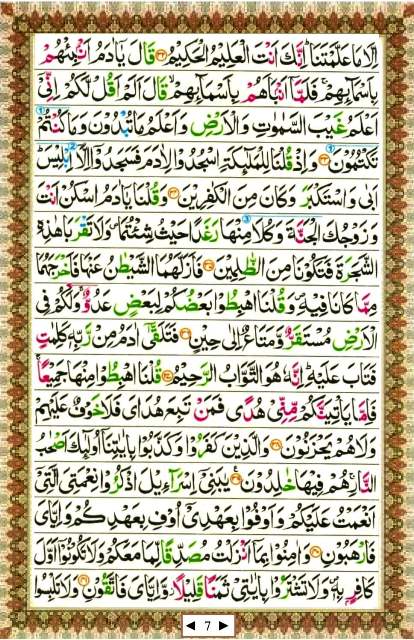 اِلَّا مَا عَلَّمْتَنَا ؕ اِنَّكَ اَنْتَ الْعَلِیْمُ الْحَكِیْمُ ﴿۳۲﴾ قَالَ یٰۤاٰدَمُ اَنْۢبِئْهُمْ
بِاَسْمَآىِٕهِمْ ۚ فَلَمَّاۤ اَنْۢبَاَهُمْ بِاَسْمَآىِٕهِمْ ۙ قَالَ اَلَمْ اَقُلْ لَّكُمْ اِنِّیْۤ
اَعْلَمُ غَیْبَ السَّمٰوٰتِ وَ الْاَرْضِ ۙ وَ اَعْلَمُ مَا تُبْدُوْنَ وَ مَا كُنْتُمْ
تَكْتُمُوْنَ ﴿۳۳﴾ وَ اِذْ قُلْنَا لِلْمَلٰٓىِٕكَةِ اسْجُدُوْا لِاٰدَمَ فَسَجَدُوْۤا اِلَّاۤ اِبْلِیْسَ ؕ
اَبٰی وَ اسْتَكْبَرَ ٭ۗ وَ كَانَ مِنَ الْكٰفِرِیْنَ ﴿۳۴﴾ وَ قُلْنَا یٰۤاٰدَمُ اسْكُنْ اَنْتَ
وَ زَوْجُكَ الْجَنَّةَ وَ كُلَا مِنْهَا رَغَدًا حَیْثُ شِئْتُمَا ۪ وَ لَا تَقْرَبَا هٰذِهِ
الشَّجَرَةَ فَتَكُوْنَا مِنَ الظّٰلِمِیْنَ ﴿۳۵﴾ فَاَزَلَّهُمَا الشَّیْطٰنُ عَنْهَا فَاَخْرَجَهُمَا
مِمَّا كَانَا فِیْهِ ۪ وَ قُلْنَا اهْبِطُوْا بَعْضُكُمْ لِبَعْضٍ عَدُوٌّ ۚ وَ لَكُمْ فِی
الْاَرْضِ مُسْتَقَرٌّ وَّ مَتَاعٌ اِلٰی حِیْنٍ ﴿۳۶﴾ فَتَلَقّٰۤی اٰدَمُ مِنْ رَّبِّهٖ كَلِمٰتٍ
فَتَابَ عَلَیْهِ ؕ اِنَّهٗ هُوَ التَّوَّابُ الرَّحِیْمُ ﴿۳۷﴾ قُلْنَا اهْبِطُوْا مِنْهَا جَمِیْعًا ۚ
فَاِمَّا یَاْتِیَنَّكُمْ مِّنِّیْ هُدًی فَمَنْ تَبِعَ هُدَایَ فَلَا خَوْفٌ عَلَیْهِمْ
وَ لَا هُمْ یَحْزَنُوْنَ ﴿۳۸﴾ وَ الَّذِیْنَ كَفَرُوْا وَ كَذَّبُوْا بِاٰیٰتِنَاۤ اُولٰٓىِٕكَ اَصْحٰبُ
النَّارِ ۚ هُمْ فِیْهَا خٰلِدُوْنَ ﴿۳۹﴾ یٰبَنِیْۤ اِسْرَآءِیْلَ اذْكُرُوْا نِعْمَتِیَ الَّتِیْۤ
اَنْعَمْتُ عَلَیْكُمْ وَ اَوْفُوْا بِعَهْدِیْۤ اُوْفِ بِعَهْدِكُمْ ۚ وَ اِیَّایَ
فَارْهَبُوْنِ ﴿۴۰﴾ وَ اٰمِنُوْا بِمَاۤ اَنْزَلْتُ مُصَدِّقًا لِّمَا مَعَكُمْ وَ لَا تَكُوْنُوْۤا اَوَّلَ
كَافِرٍۭ بِهٖ ۪ وَ لَا تَشْتَرُوْا بِاٰیٰتِیْ ثَمَنًا قَلِیْلًا ؗ وَّ اِیَّایَ فَاتَّقُوْنِ ﴿۴۱﴾ وَ لَا تَلْبِسُوا
◄ 7 ►